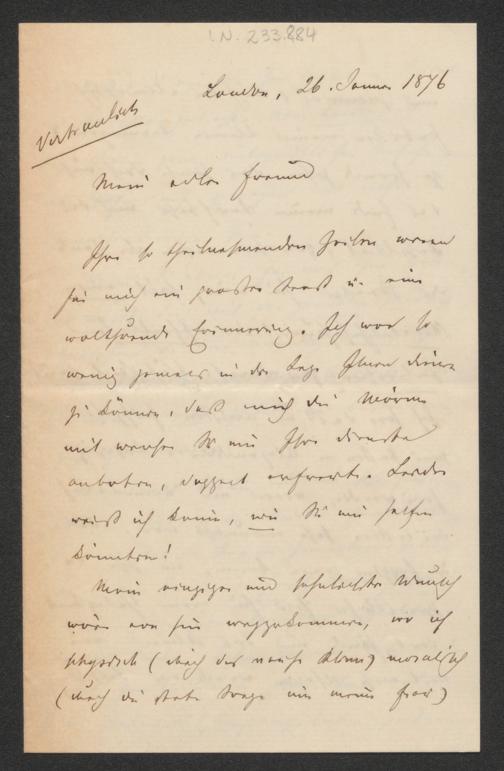 I.N. 233.884
London, 26. Januar 1876
Vertraulich
Mein edler Freund
Ihre so theilnehmenden Zeilen waren
für mich ein großer Trost u. eine
wohlthuende Erinnerung. Ich war so
wenig jemals in der Lage Ihnen dienen
zu können, daß mich die Wärme
mit welcher Sie mir Ihre Dienste
anboten, doppelt erfreute. Leider
weiß ich kaum, wie Sie mir helfen
könnten!
Mein einziger und sehnlichster Wunsch
wäre von hier wegzukommen, wo ich
physisch (durch das rauhe Klima) moralisch
(durch die stete Sorge um meine Frau)